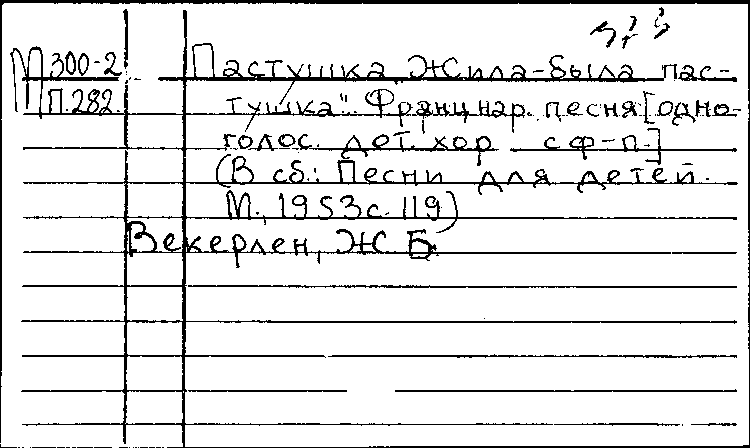 М 300-2
П.282.
Пастушка „Жила-была пас-
тушка". Франц. нар. песня [одно-
голос. дет. хор с ф-п.]
(В сб.: Песни для детей.
М., 1953 с. 119)
Векерлен, Ж. Б.